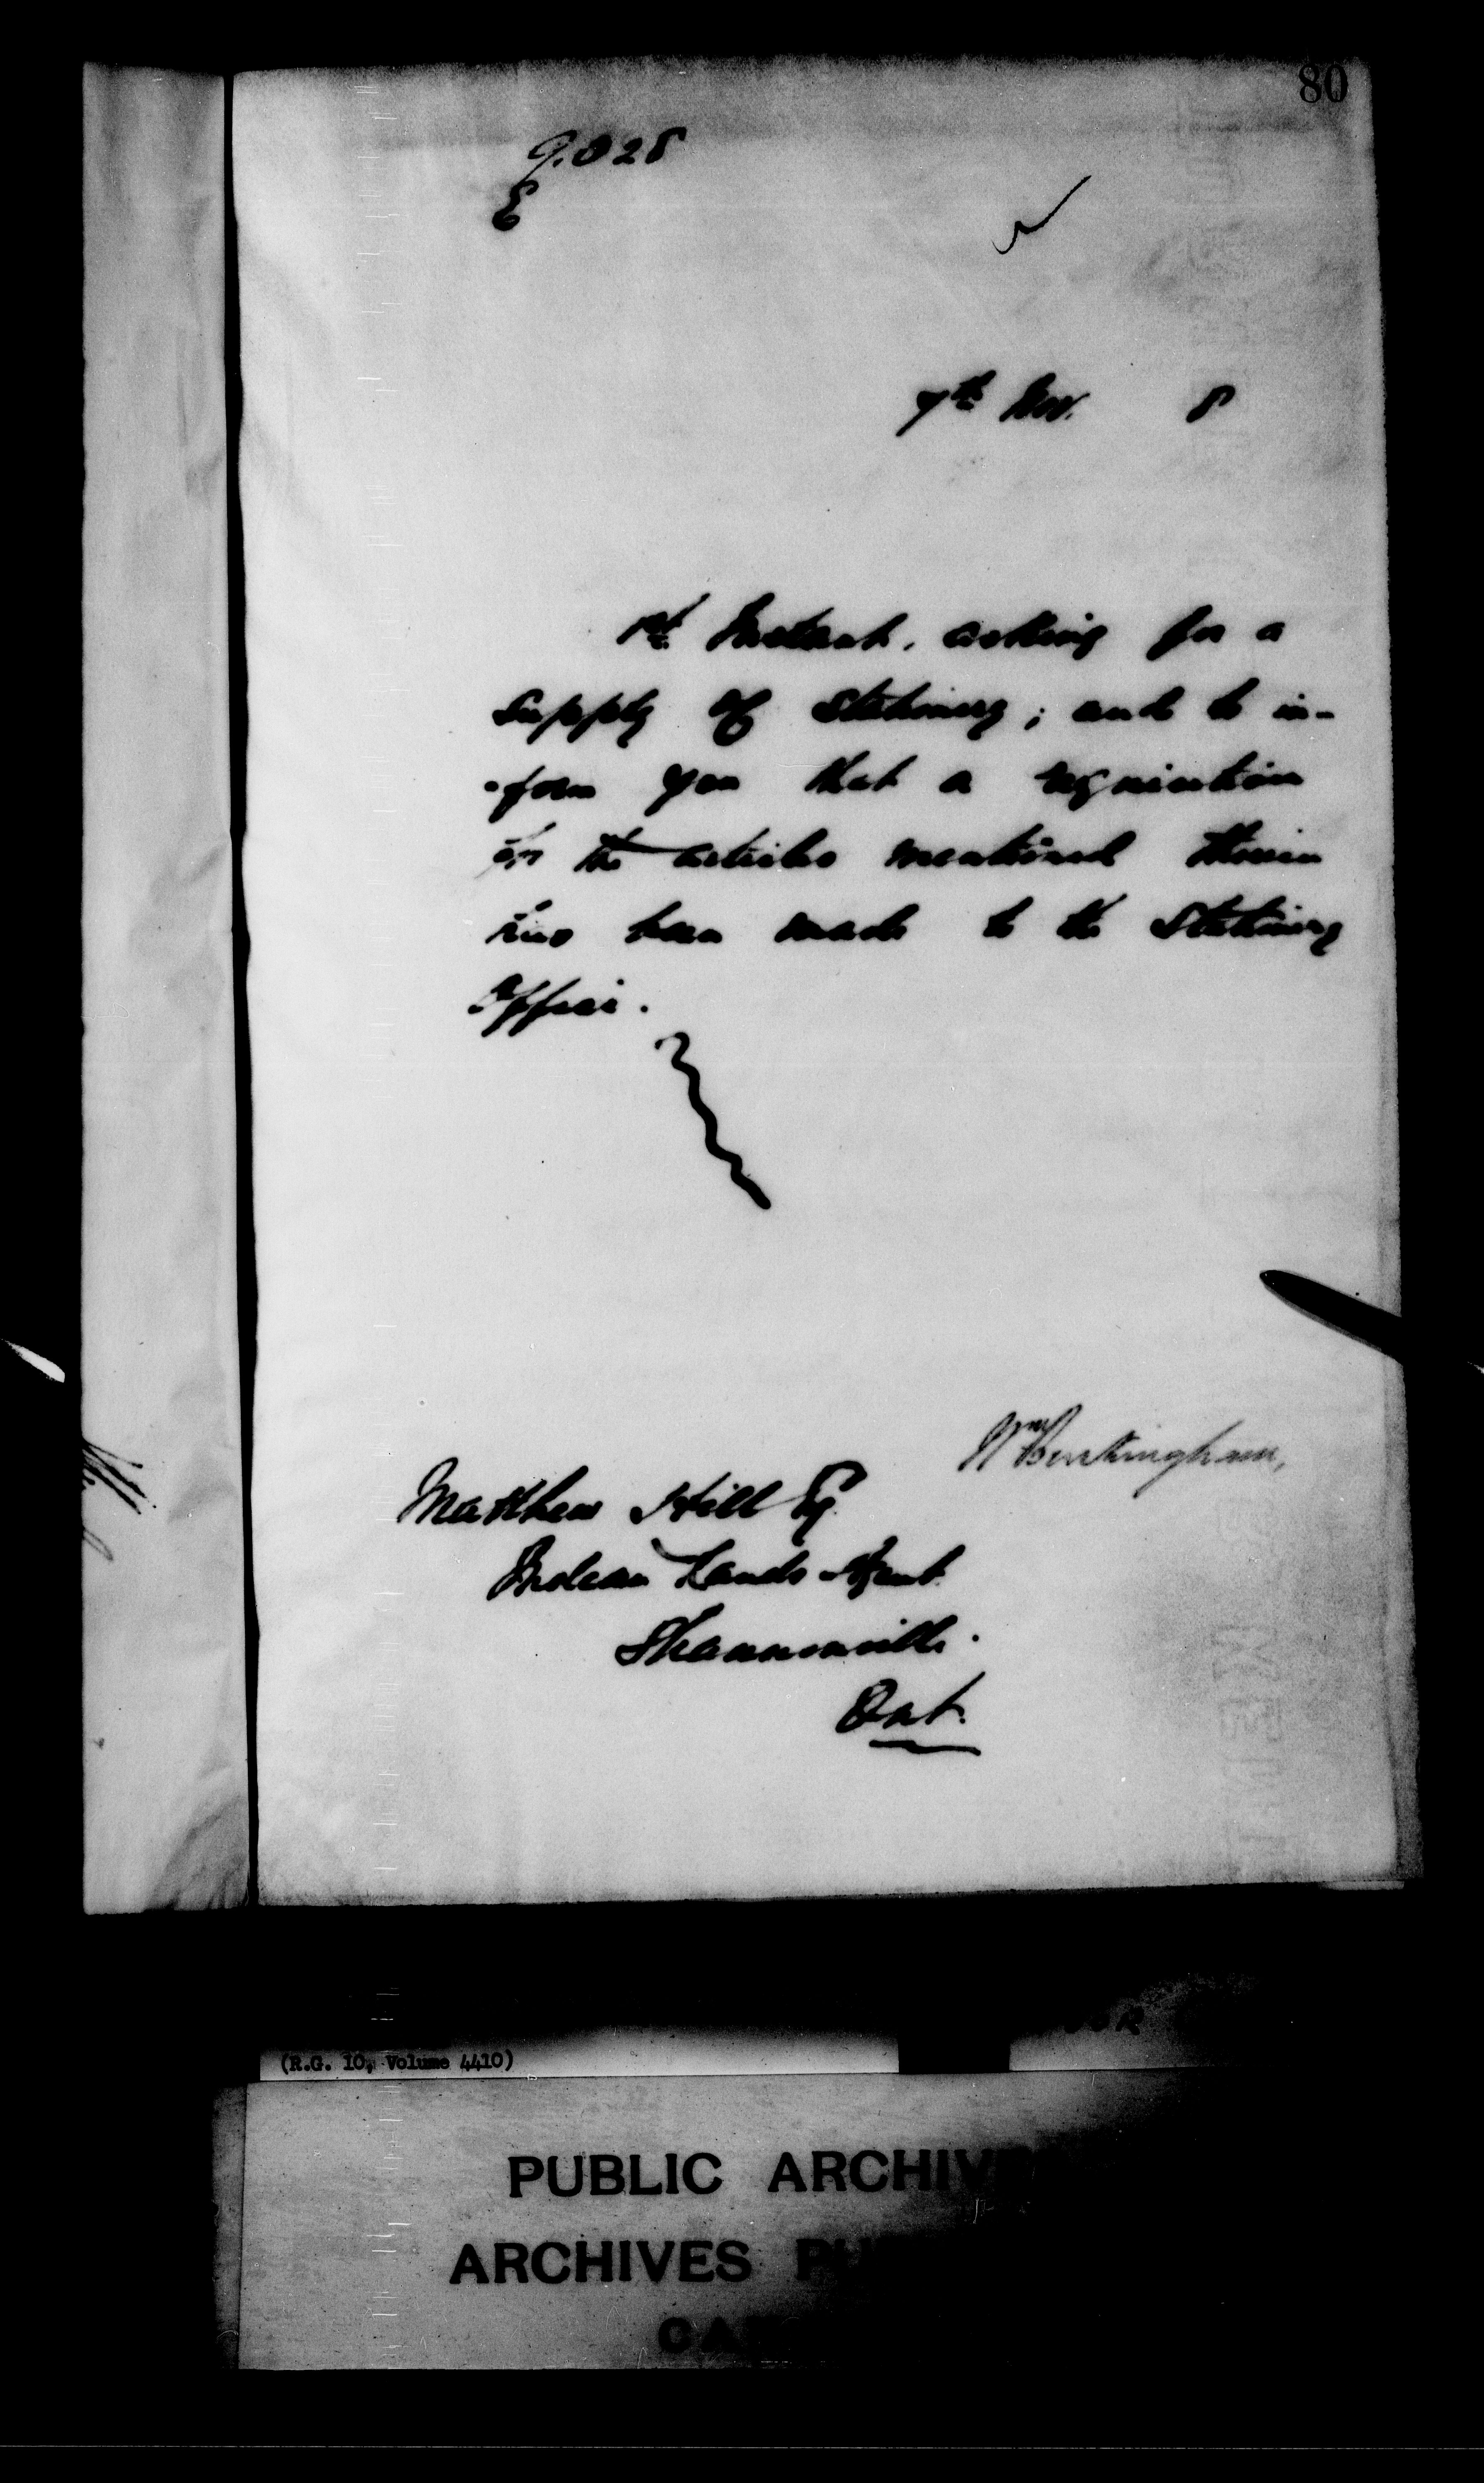 80
9.028
E
7th Nov. 8
1st Instant, asking for a
supply of stationery; and to in-
-form you that a requisition
for the articles mentioned therein
has been made to the Stationery
Office.
Wm Buckingham,
Matthew Hill Esq
Indian Lands Agent
Shannonville.
Ont.
(R.G. 10, Volume 4410)
PUBLIC ARCHIV
ARCHIVES PU
CA